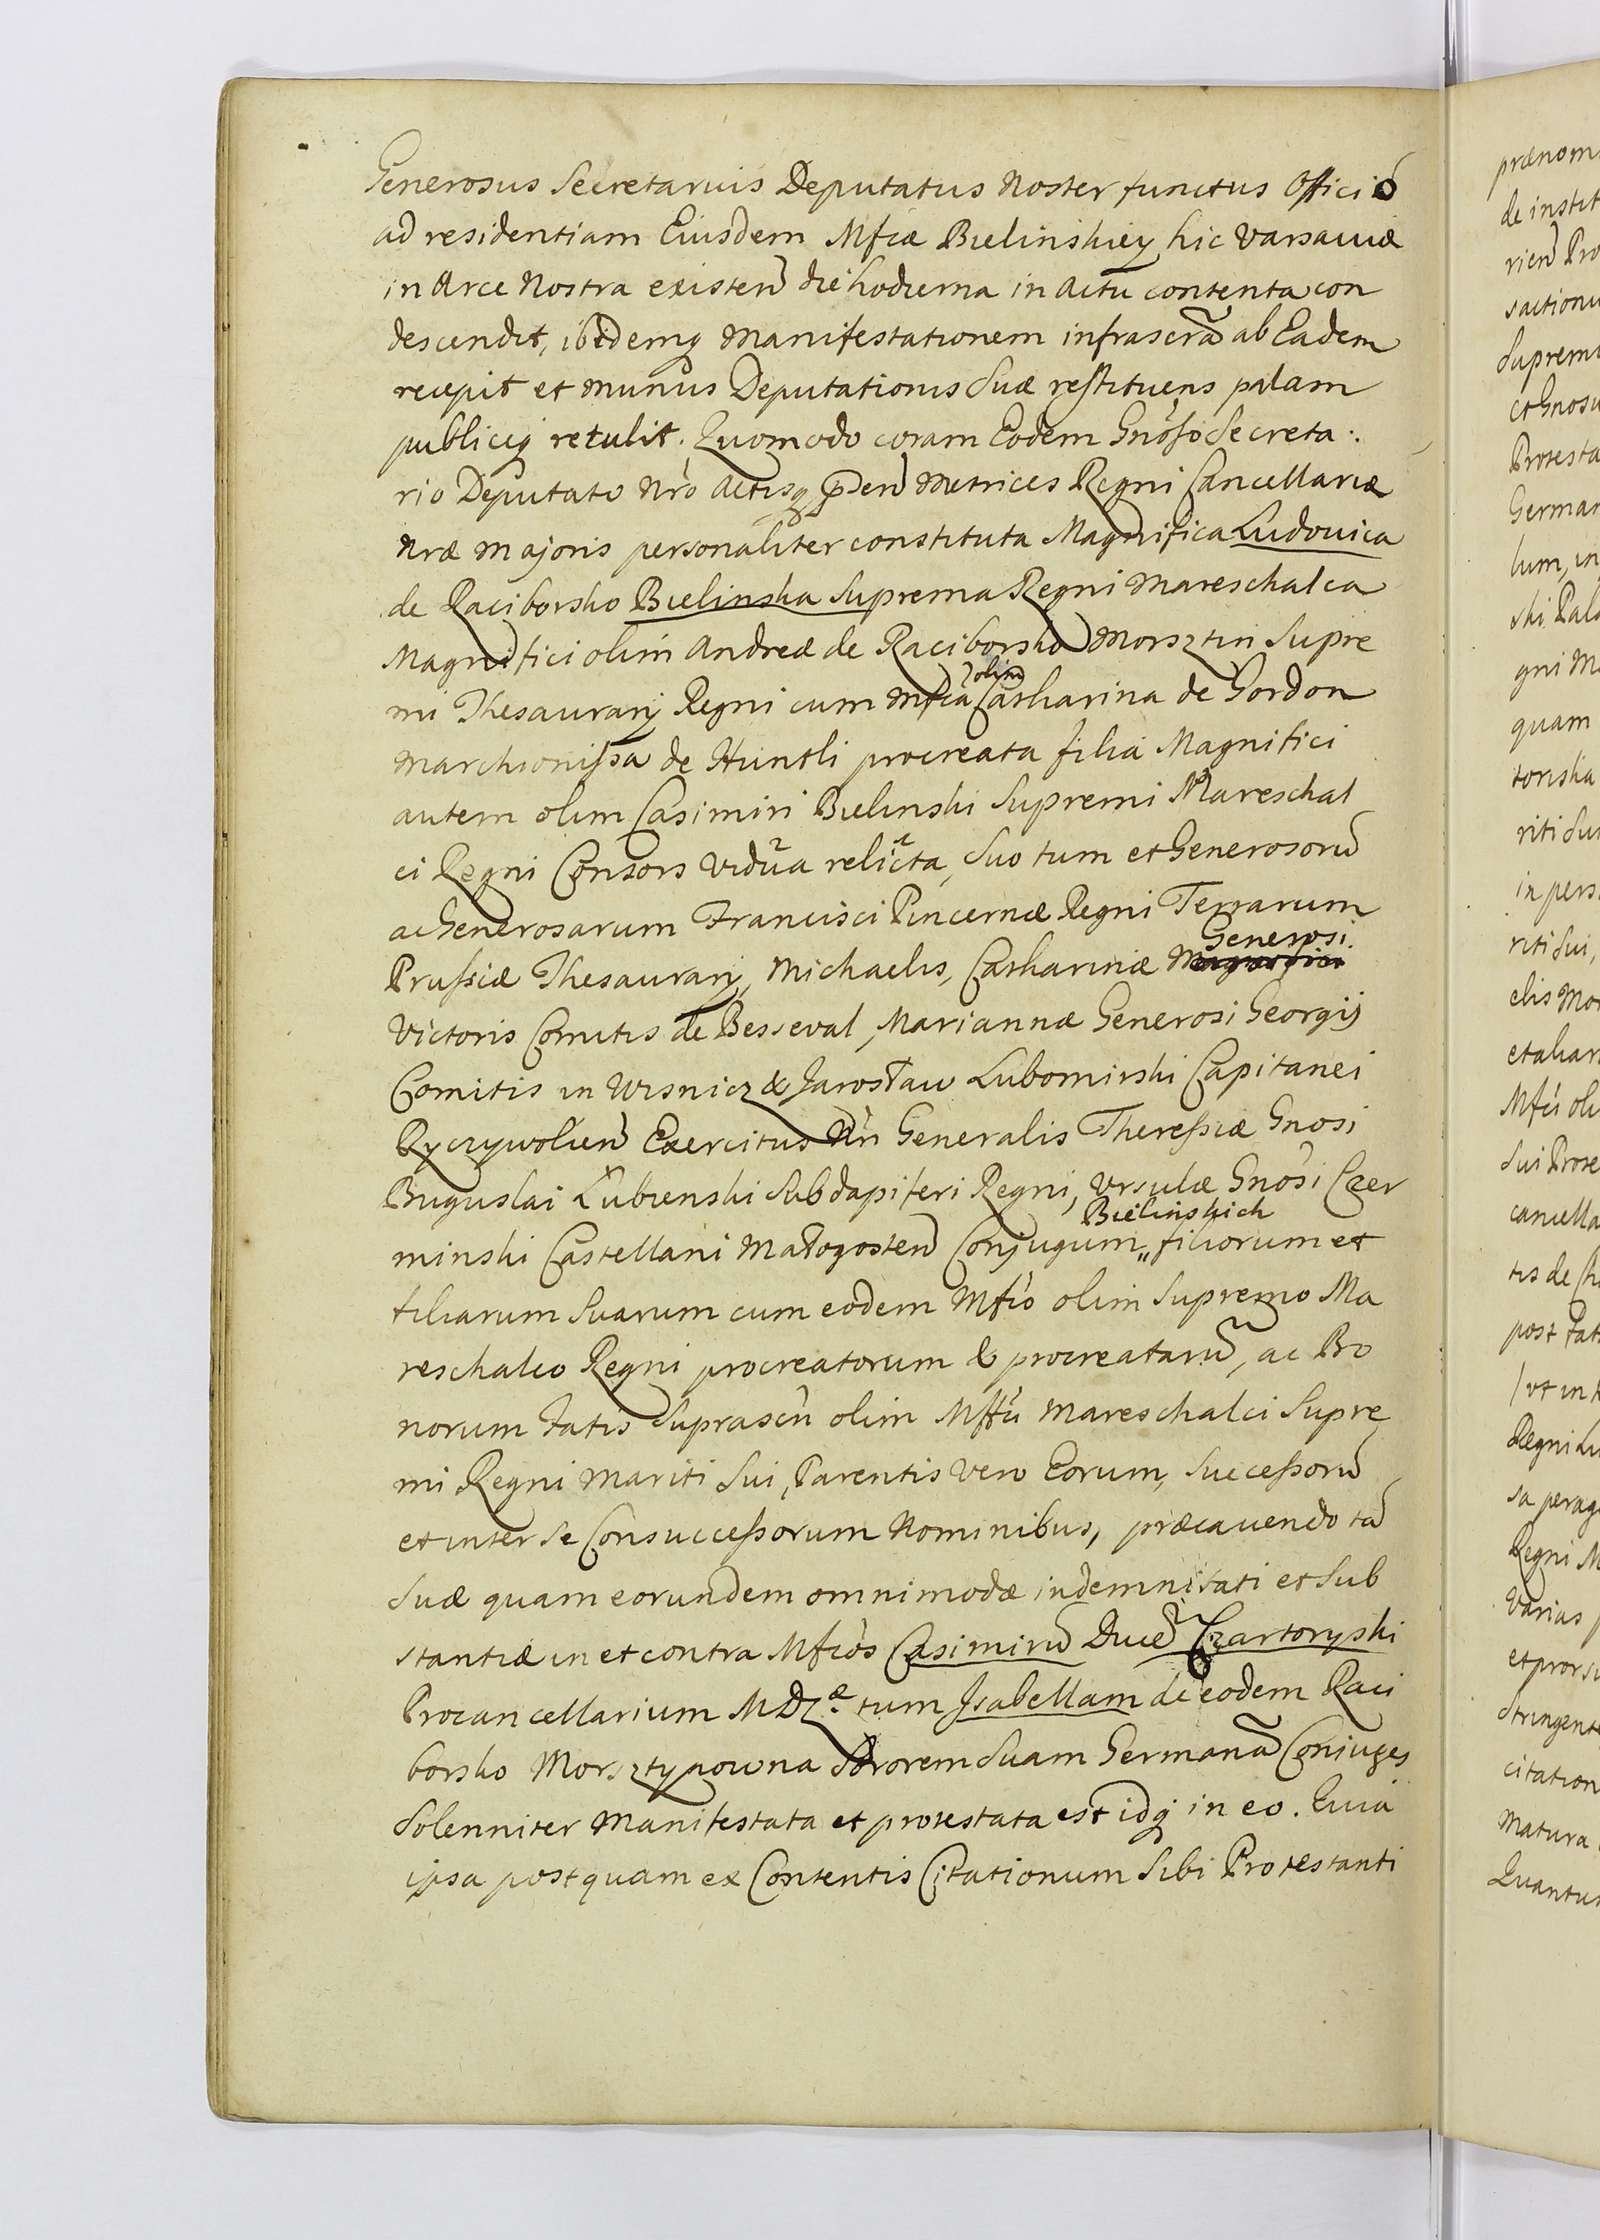 Generosus Secretarius Deputatus Noster functus Officio
ad residentiam Eiusdem Mfcæ Bielinskiey hic Varsaviæ
in Arce Nostra existeñ die hodierna in Actu contenta con
descendit, ibidemq manifestationem infrascrã ab Eadem
recepit et munus Deputationis Suæ restituens palam
publiceq retulit. Quomodo coram Eodem Gnoso Secreta:
rio Deputato Nro Actisq pñden Metrices Regni Cancellariæ
Nræ Majoris personaliter constituta Magnifica Ludovica
de Raciborsko Bielinska Suprema Regni Mareschalca
Magnifici olim Andreæ de Raciborsko Morsztin Supre
mi Thesaurarij Regni cum Mfca olim Catharina de Gordon
Marchionissa de Huntli procreata filia Magnifici
autem olim Casimiri Bielinski Supremi Mareschal
ci Regni Consors Vidua relicta, Suo tum et Generosorũ
ac Generosarum Francisci Pincernæ Regni Terrarum
Prussiæ Thesaurarij, Michaelis, Catharinæ Generosi
Victoris Comitis de Besseval, Mariannæ Generosi Georgij
Comitis in Wisnicz & Jarosław Lubomirski Capitanei
Ryczywolieñ Exercitus Nri Generalis Theressiæ Gnosi
Buguslai Łubienski Subdapiferi Regni, Ursulæ Gnosi Czer
minski Castellani Małogosteñ Conjugum Bielinskich filiorum et
filiarum Suarum cum eodem Mfco olim Supremo Ma
reschalco Regni procreatorum & procreatarũ, ac Bo
norum fatis Suprascri olim Mffci Mareschalci Supre
mi Regni Mariti Sui, Parentis Vero Eorum, Successorũ
et inter Se Consuccessorum Nominibus, præcavendo tã
Suæ quam eorundem omnimodæ indemnitati et Sub
stantiæ in et contra Mfcos Casimirũ Ducẽ Czartoryski
Procancellarium M D Læ tum Isabellam de eodem Raci
borsko Morsztynowna Sororem Suam Germanã Coniuges
Solenniter Manifestata et protestata est idq in eo. Quia
ipsa postquam ex Contentis Citationum Sibi Protestanti